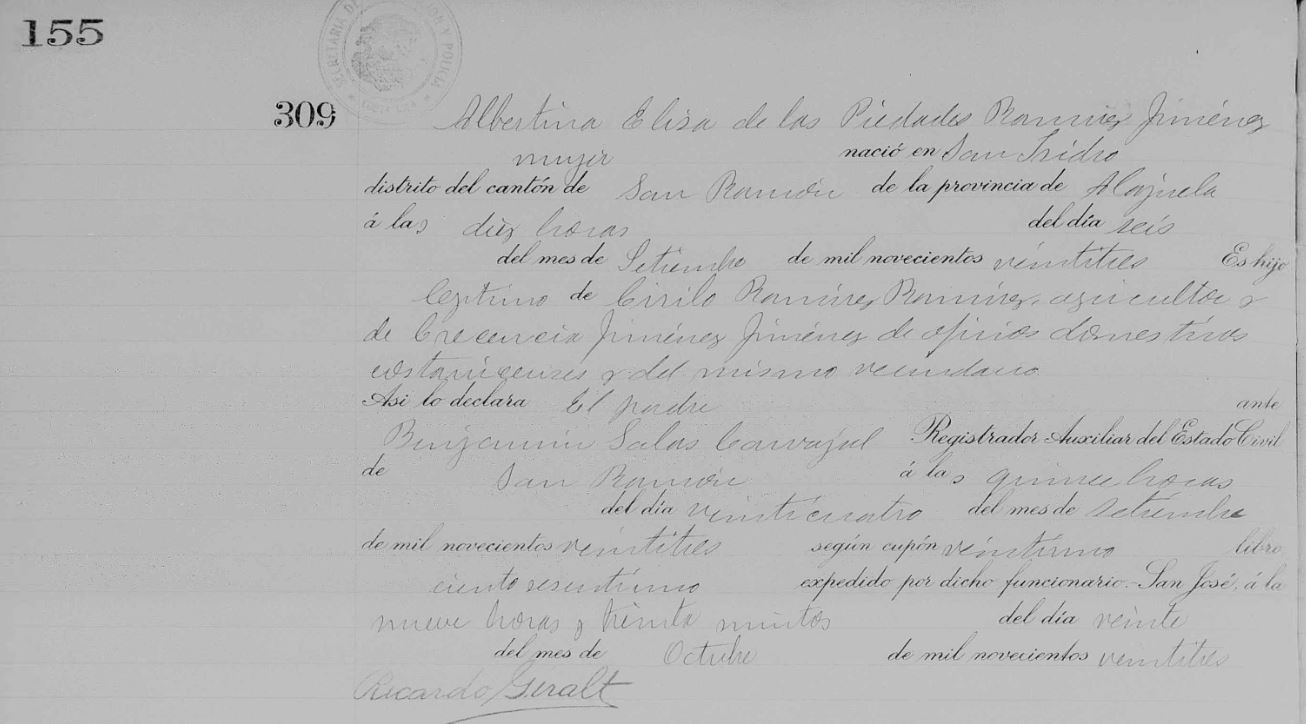 155
SECRETARIA DE GOBERNACION Y POLICIA
309
Albertina Elisa de las Piedades Ramirez Jiménez
mujer nació en San Isidro
distrito del cantón de San Ramón de la provincia de Alajuela
á las diez horas del día seis
del mes de Setiembre de mil novecientos veintitres Es hijo
legitimo de Cirilo Ramírez Ramírez, agricultor y
de Crecencia Jiménez Jiménez de oficios domesticos
costarricenses y del mismo vecindario
Asi lo declara El padre ante
Benjamín Salas Carvajal Registrador Auxiliar del Estado Civil
de San Ramón á las quince horas
del día veinticuatro del mes de setiembre
de mil novecientos veintitres según cupón veintiuno libro
ciento sesentiuno expedido por dicho funcionario.-San José, á la
nueve horas y treinta minutos del día veinte
del mes de Octubre de mil novecientos veintitres
Ricardo Giralt